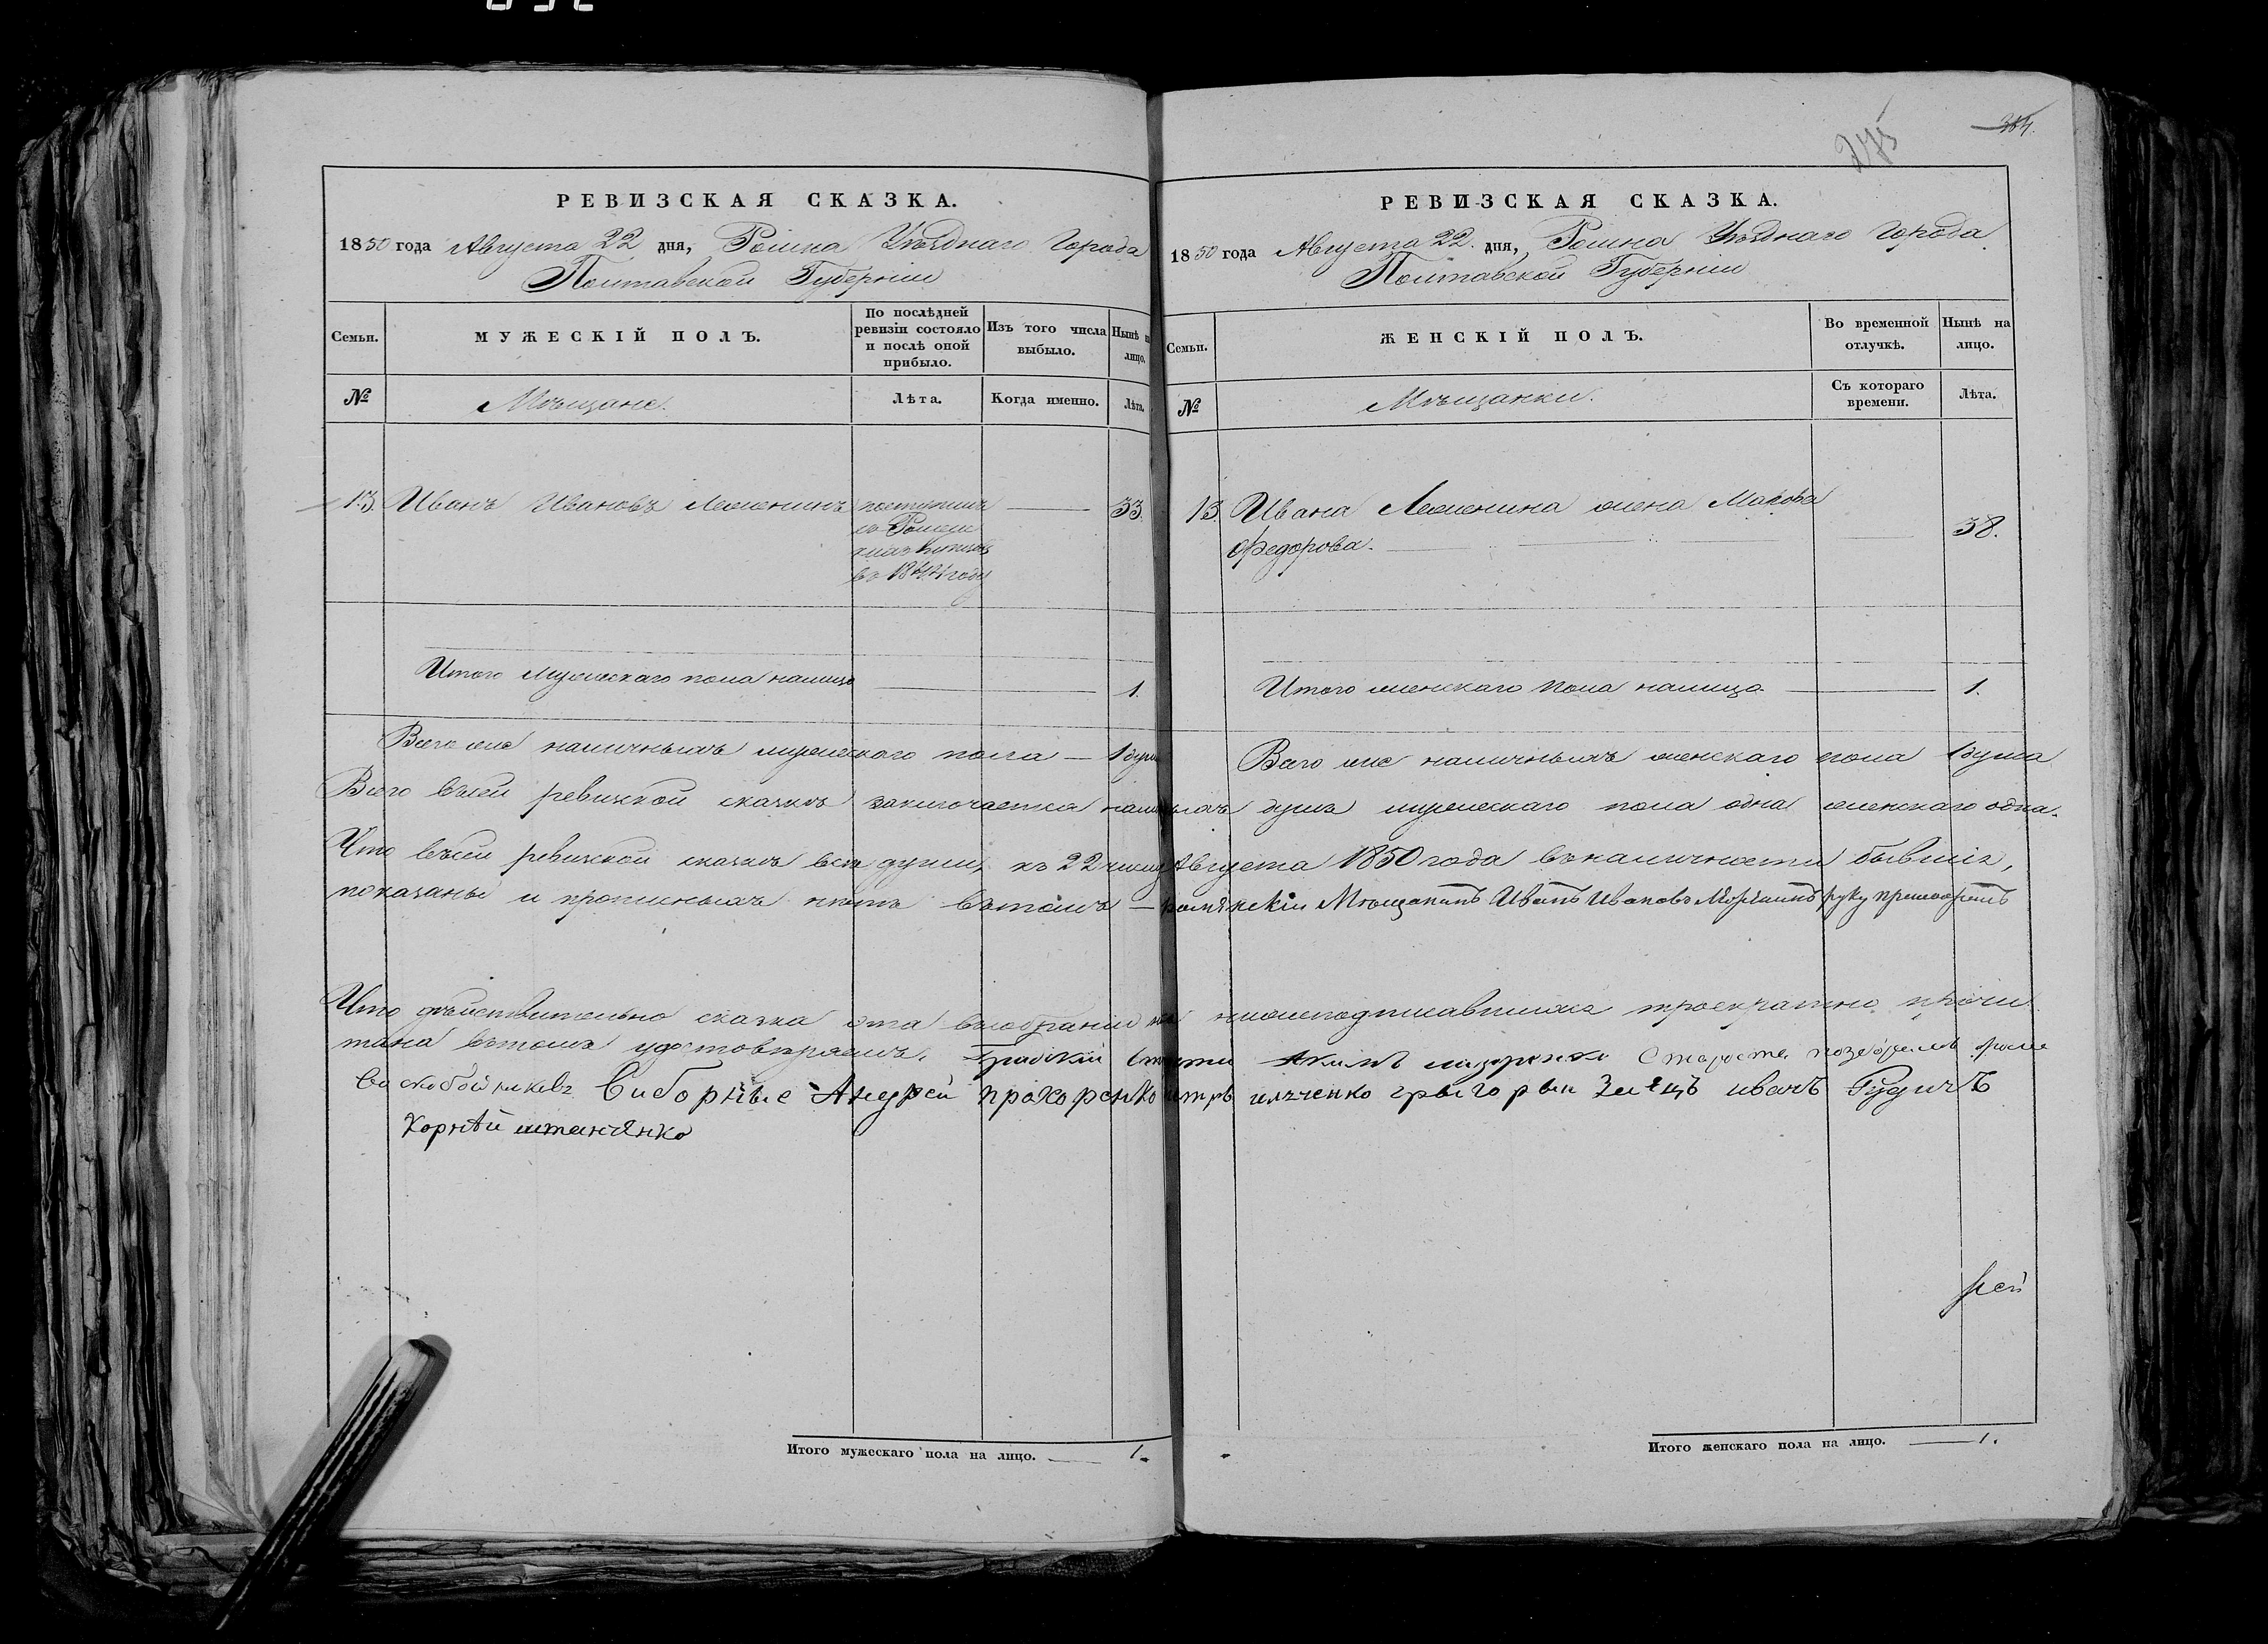 275
364.
РЕВИЗСКАЯ СКАЗКА.
1850 года Августа 22 дня, Ромна Уѣзднаго Города
Полтавской Губерніи
Семьи.
МУЖЕСКІЙ ПОЛЪ.
По послѣдней
ревизіи состояло
и послѣ оной
прибыло.
Изъ того числа
выбыло.
Нынѣ н
лицо.
№
Мѣщане.
Лѣта.
Когда именно.
Лѣта.
13. Иванъ Ивановъ поступилъ 33.
въ 1844 году
Итого мужескаго пола налицо 1.
Всего же наличныхъ мужескаго пола — 1 душа
Всего въ сей ревизской сказкѣ заключается наличныхъ душъ мужескаго пола одна женскаго одна.
Что въ сей ревизской сказкѣ всѣ души, къ 22 числу Августа 1850 года въ наличности бывшіе,
показаны и прописныхъ нѣтъ въ томъ — Мѣщанинъ Иванъ Ивановъ руку
Что дѣйствительно сказка эта въ собраніи нижеподписавшихся троекратно прочи
тана въ томъ удостовѣряемъ. Градскій Акимъ Староста
Виборные Андрей прохоренко петръ илъченко грыгорьи иванъ Рудичъ
Корнѣй
Итого мужескаго пола на лицо. 1.
РЕВИЗСКАЯ СКАЗКА.
1850 года Августа 22. дня, Ромна Уѣзднаго Города
Полтавской Губерніи
Семьи.
ЖЕНСКІЙ ПОЛЪ.
Во временной
отлучкѣ.
Нынѣ на
лицо.
№
Мѣщанки.
Съ котораго
времени.
Лѣта.
13. Ивана жена
Федорова. 38.
Итого женскаго пола налицо 1.
Всего же наличныхъ женскаго пола 1 душа
Итого женскаго пола на лицо. 1.